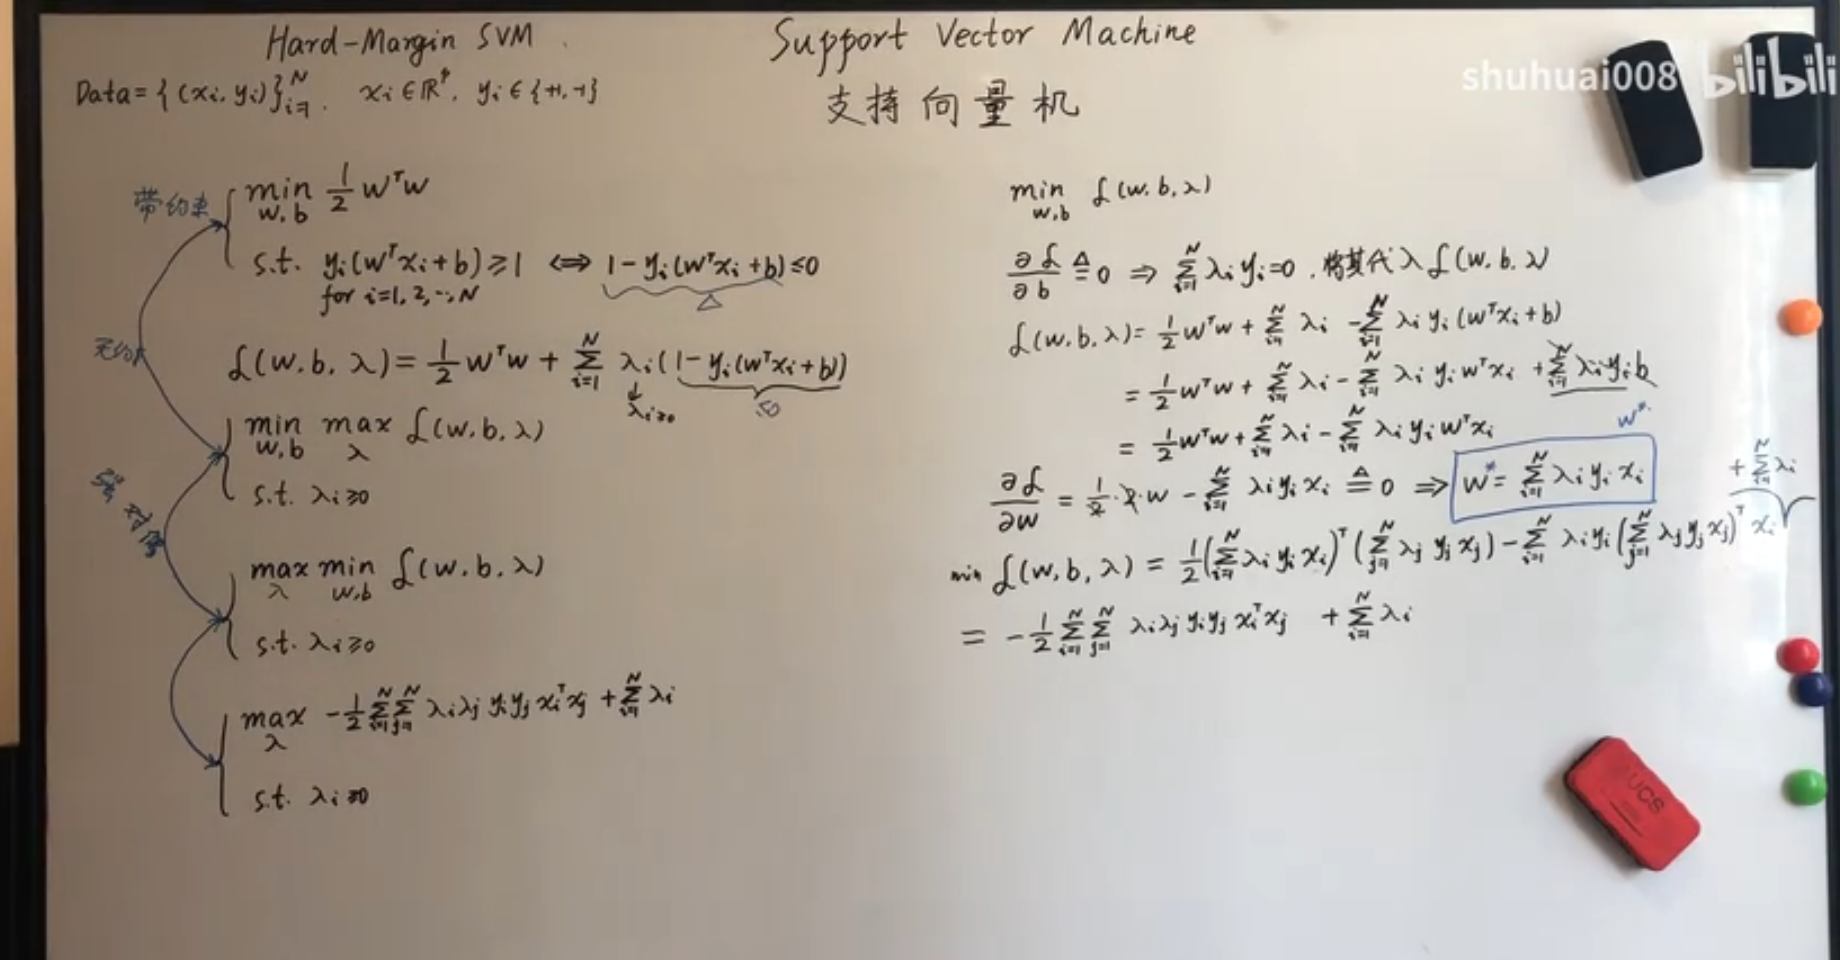 Hard-Margin SVM
Support Vector Machine
shuhuai008 bilibili
Data = { (xᵢ, yᵢ) }ᵢ₌₁ᴺ, xᵢ ∈ ℝᵖ, yᵢ ∈ {+1, -1}
支持向量机
带约束
min_{w,b} 1/2 wᵀw
s.t. yᵢ(wᵀxᵢ+b) ≥ 1 ⇔ 1-yᵢ(wᵀxᵢ+b) ≤ 0
for i=1, 2, ..., N
△
无约
ℒ(w, b, λ) = 1/2 wᵀw + Σ_{i=1}^N λᵢ(1-yᵢ(wᵀxᵢ+b))
λᵢ≥0 ≤0
min_{w,b} max_λ ℒ(w, b, λ)
s.t. λᵢ≥0
强对偶
max_λ min_{w,b} ℒ(w, b, λ)
s.t. λᵢ≥0
max_λ -1/2 Σ_{i=1}^N Σ_{j=1}^N λᵢλⱼ yᵢyⱼ xᵢᵀxⱼ + Σ_{i=1}^N λᵢ
s.t. λᵢ≥0
min_{w,b} ℒ(w, b, λ)
∂ℒ/∂b ≜ 0 ⇒ Σ_{i=1}^N λᵢyᵢ=0, 将其代入 ℒ(w, b, λ)
ℒ(w, b, λ) = 1/2 wᵀw + Σ_{i=1}^N λᵢ - Σ_{i=1}^N λᵢyᵢ(wᵀxᵢ+b)
= 1/2 wᵀw + Σ_{i=1}^N λᵢ - Σ_{i=1}^N λᵢyᵢwᵀxᵢ + Σ_{i=1}^N λᵢyᵢb
= 1/2 wᵀw + Σ_{i=1}^N λᵢ - Σ_{i=1}^N λᵢyᵢwᵀxᵢ
w*
∂ℒ/∂w = 1/2·2·w - Σ_{i=1}^N λᵢyᵢxᵢ ≜ 0 ⇒ w* = Σ_{i=1}^N λᵢyᵢxᵢ
+ Σ_{i=1}^N λᵢ
min ℒ(w, b, λ) = 1/2 (Σ_{i=1}^N λᵢyᵢxᵢ)ᵀ (Σ_{j=1}^N λⱼyⱼxⱼ) - Σ_{i=1}^N λᵢyᵢ (Σ_{j=1}^N λⱼyⱼxⱼ)ᵀ xᵢ
= -1/2 Σ_{i=1}^N Σ_{j=1}^N λᵢλⱼyᵢyⱼxᵢᵀxⱼ + Σ_{i=1}^N λᵢ
AUCS